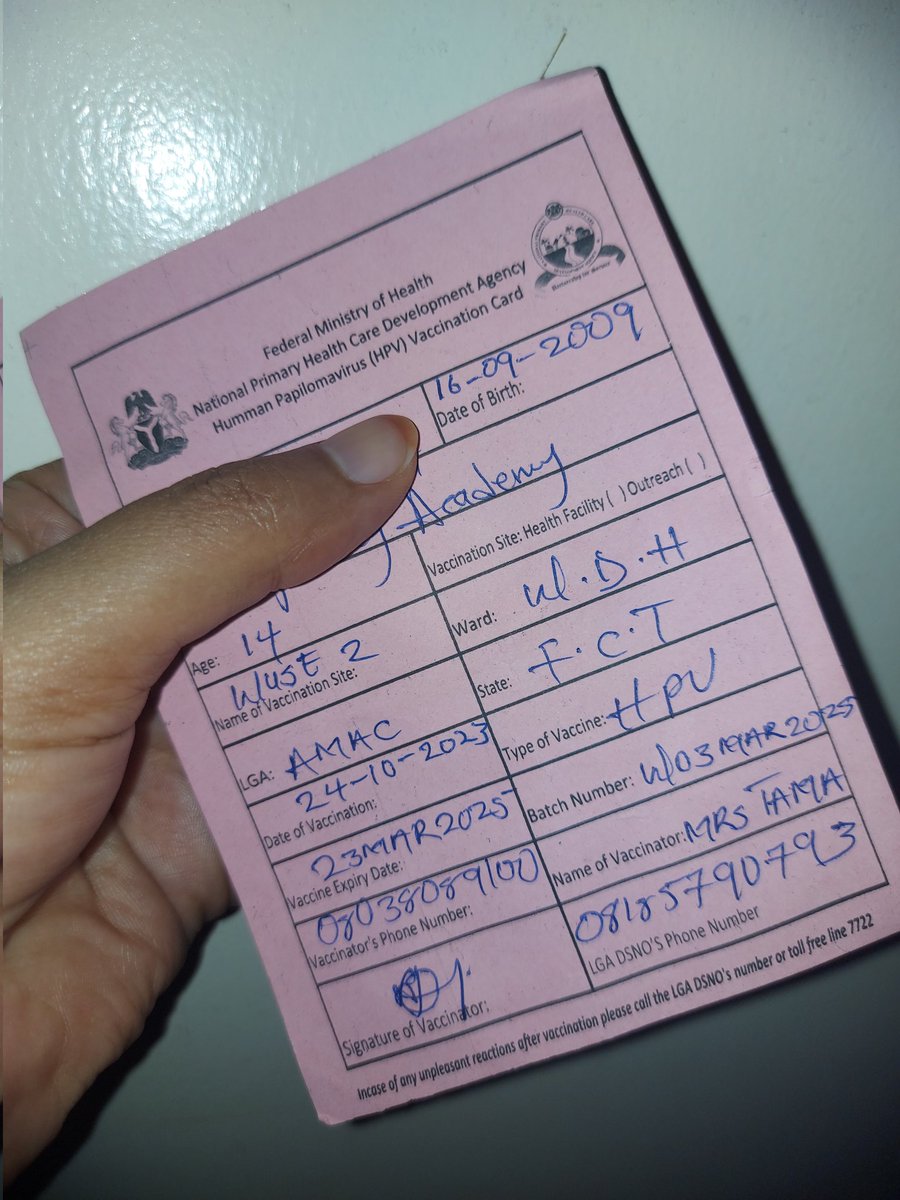 Federal Ministry of Health
National Primary Health Care Development Agency
Humman Papilomavirus (HPV) Vaccination Card
16-09-2009
Date of Birth:
Academy
Vaccination Site: Health Facility ( ) Outreach ( )
Age: 14
Ward: W.D.H
WUSE 2
Name of Vaccination Site:
State: F.C.T
LGA: AMAC
Type of Vaccine: HPV
24-10-2023
Date of Vaccination:
Batch Number: W03MAR2025
23MAR2025
Vaccine Expiry Date:
Name of Vaccinator: MRS TAMA
08038089100
Vaccinator's Phone Number:
08185790793
LGA DSNO'S Phone Number
Signature of Vaccinator:
Incase of any unpleasant reactions after vaccination please call the LGA DSNO's number or toll free line 7722